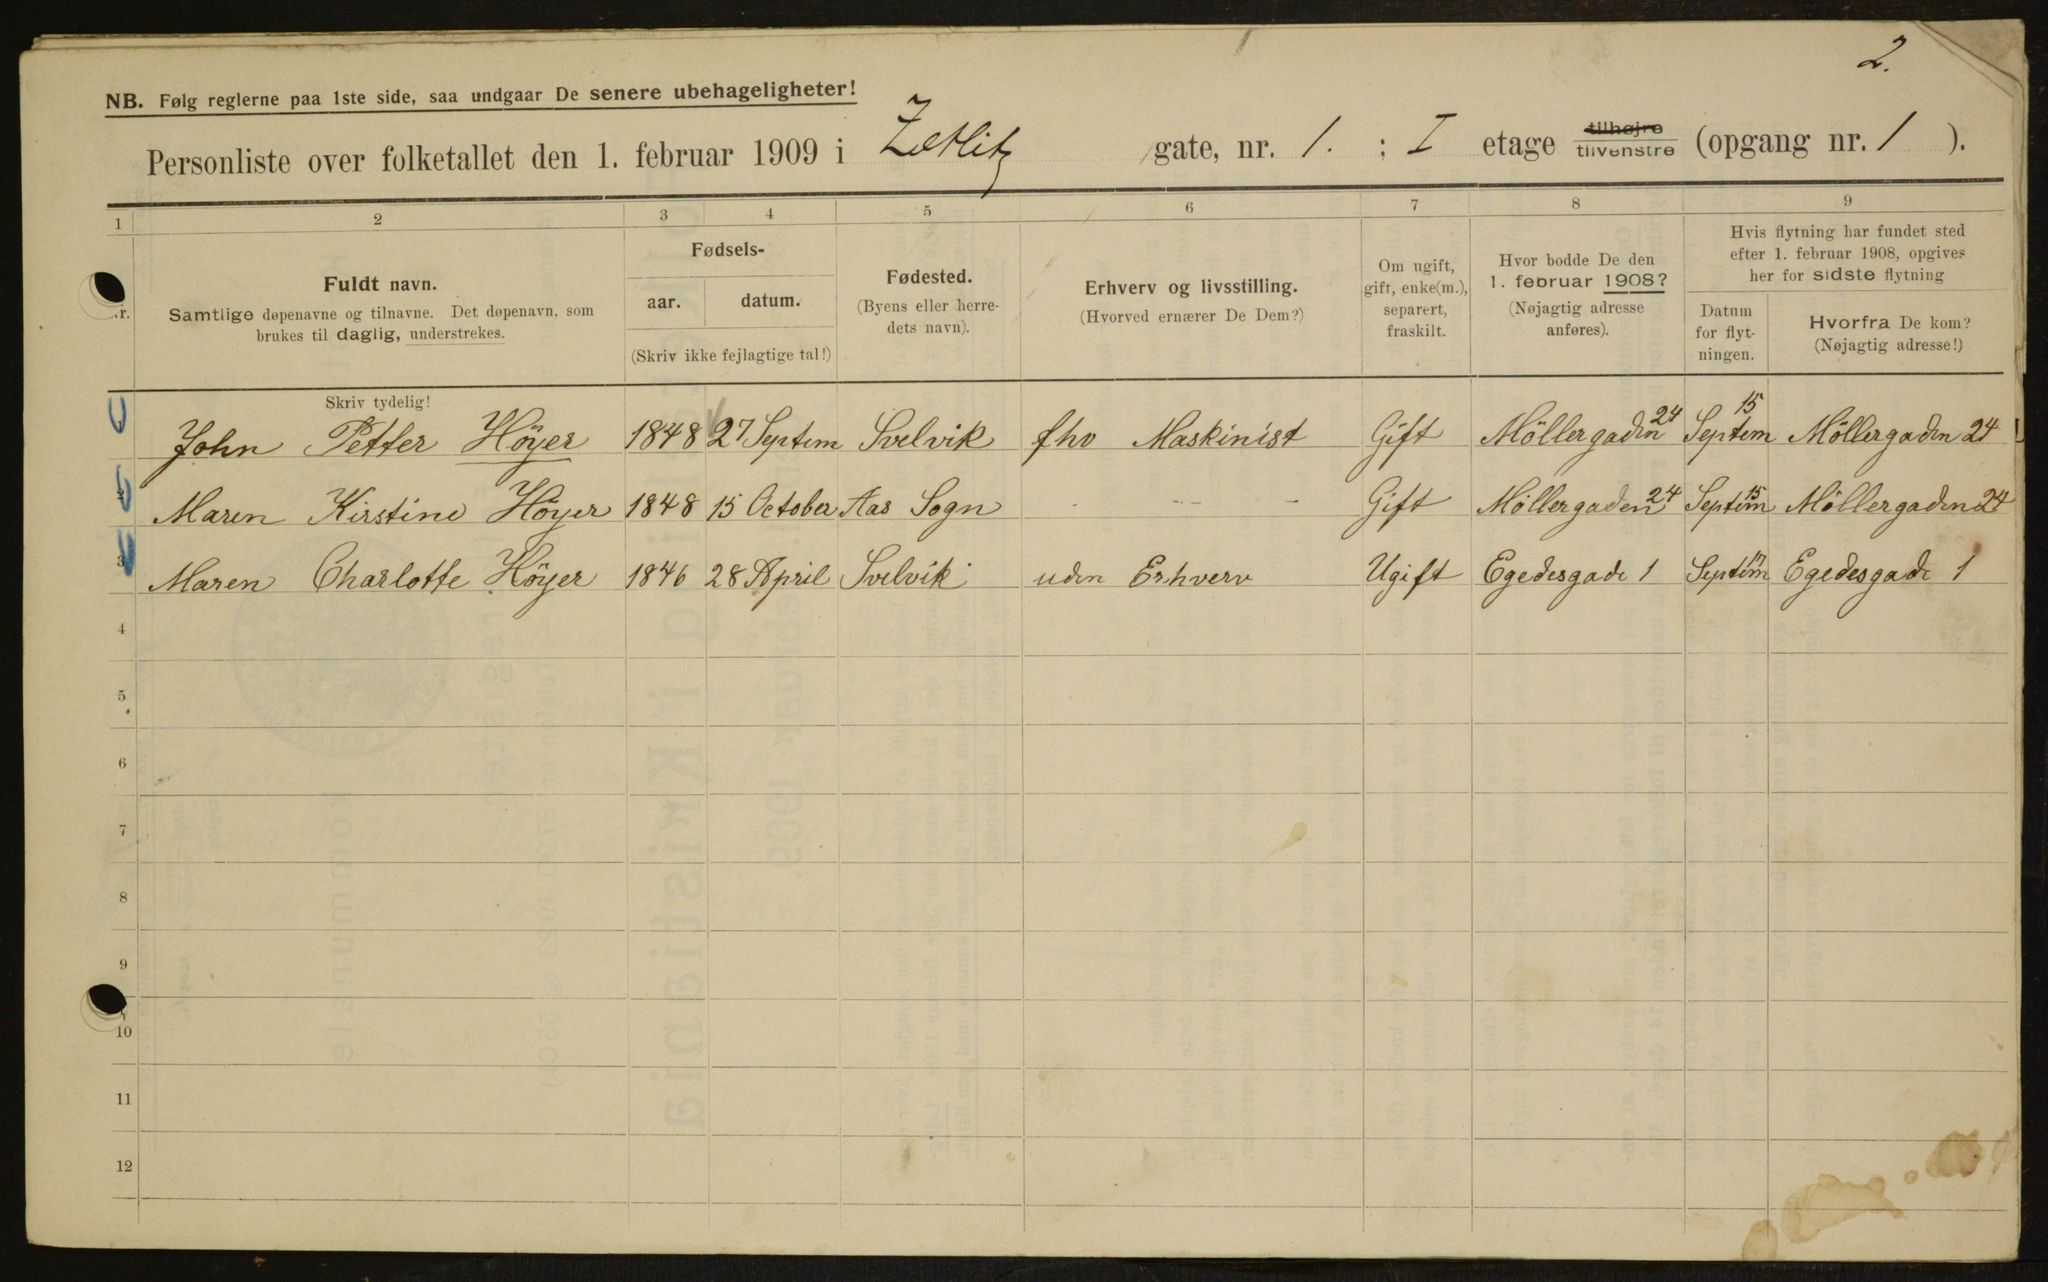 2.
NB. Følg reglerne paa 1ste side, saa undgaar De senere ubehageligheter!
Personliste over folketallet den 1. februar 1909 i Zetlitz gate, nr. 1. ; I etage tilhøjre tilvenstre (opgang nr. 1 ).
1 2 3 4 5 6 7 8 9
Fuldt navn.
Samtlige døpenavne og tilnavne. Det døpenavn, som
brukes til daglig, understrekes.
Fødsels-
aar. datum.
(Skriv ikke fejlagtige tal!)
Fødested.
(Byens eller herre-
dets navn).
Erhverv og livsstilling.
(Hvorved ernærer De Dem?)
Om ugift,
gift, enke(m.),
separert,
fraskilt.
Hvor bodde De den
1. februar 1908?
(Nøjagtig adresse
anføres).
Hvis flytning har fundet sted
efter 1. februar 1908, opgives
her for sidste flytning
Datum
for flyt-
ningen.
Hvorfra De kom?
(Nøjagtig adresse!)
Skriv tydelig!
John Petter Höyer 1848 27 Septem Svelvik fhv Maskinist Gift Möllergaden 24 15 Septem Möllergaden 24
Maren Kirstine Höyer 1848 15 October Aas Sogn - - - Gift Möllergaden 24 Septem 15 Möllergaden 24
3 Maren Charlotte Höyer 1846 28 April Svelvik uden Erhverv Ugift Egedesgade 1 Septem Egedesgade 1
4
5
6
7
8
9
10
11
12